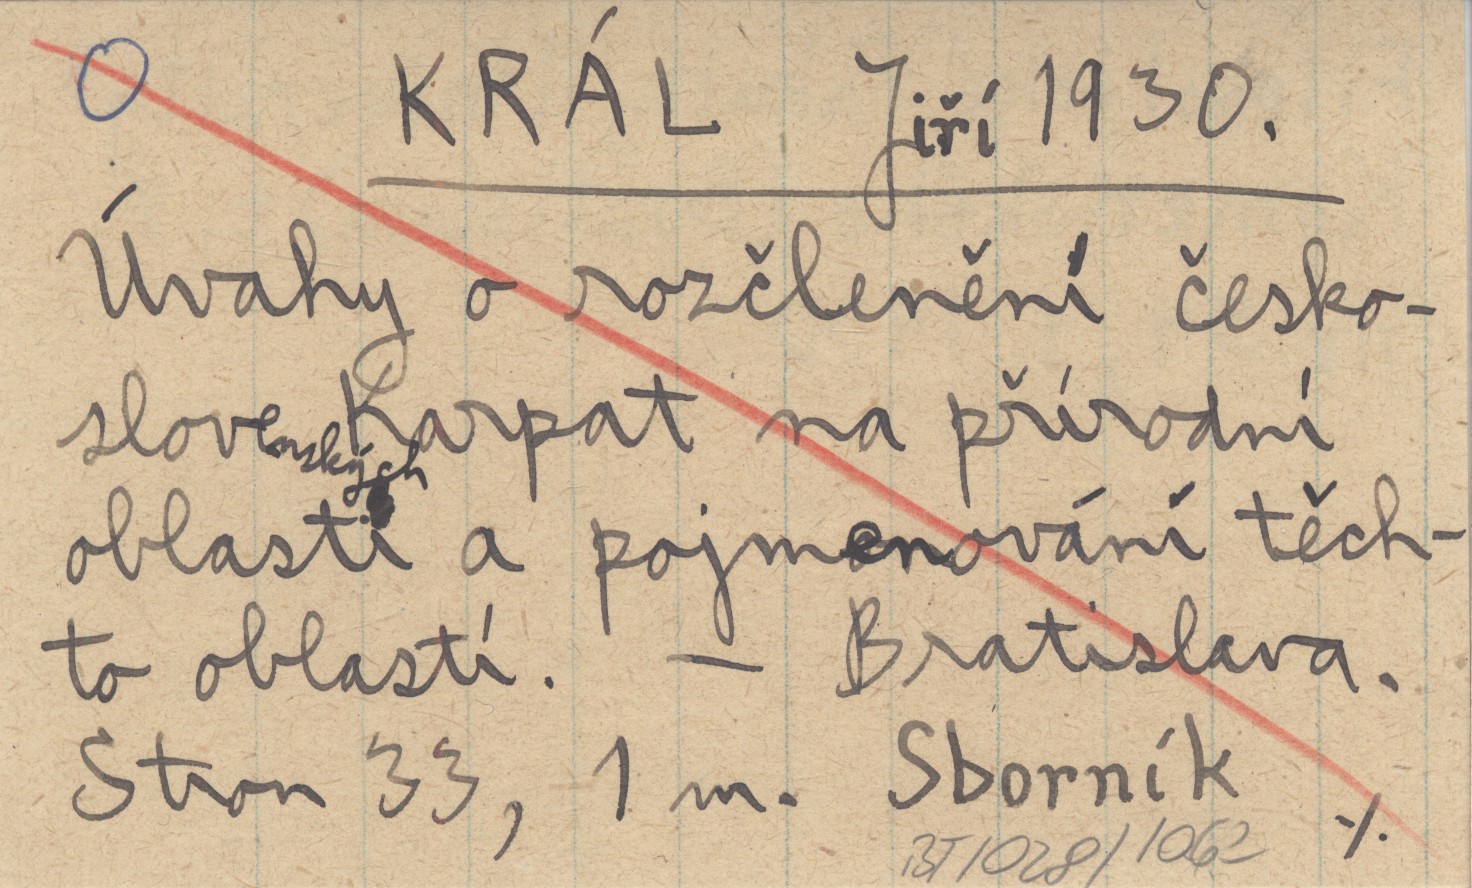 KRÁL Jiří 1930.
Úvahy o rozčlenění česko-
slovenských Karpat na přírodní
oblasti a pojmenování těch-
to oblastí. — Bratislava.
Stron 33, 1 m. Sborník
·/.
BT/1028/1062